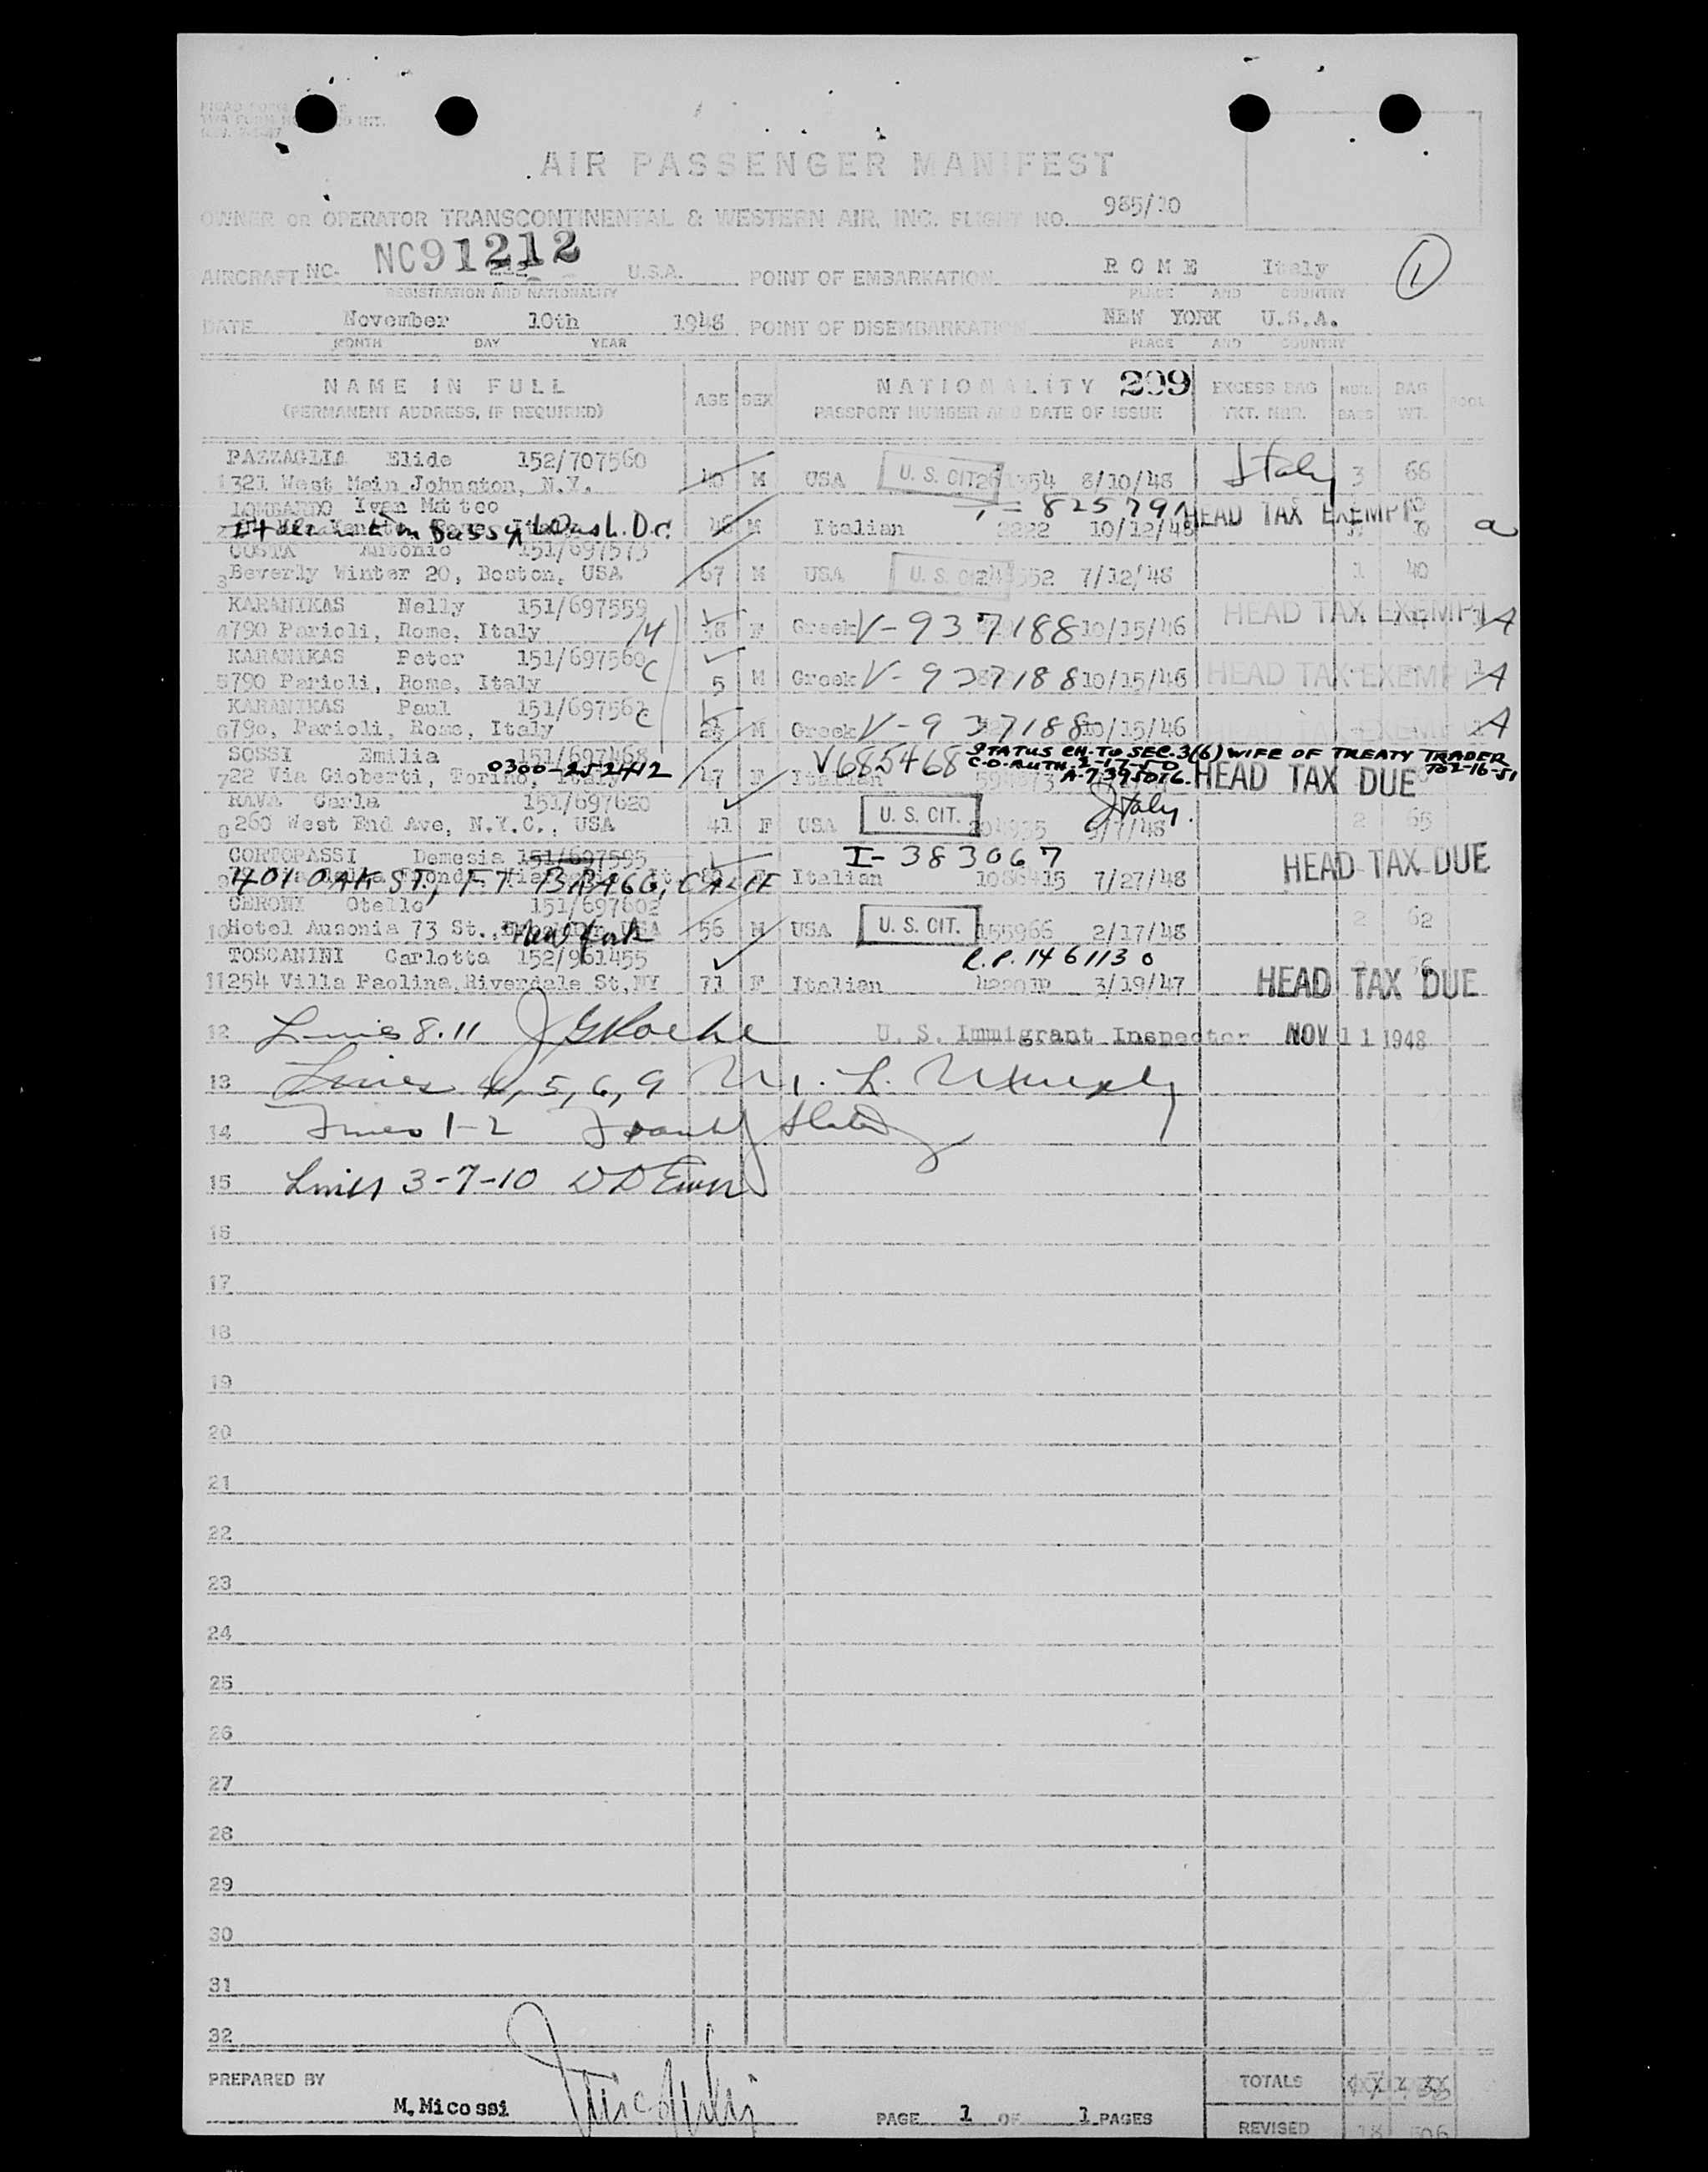 AIR PASSENGER MANIFEST
OWNER OR OPERATOR TRANSCONTINENTAL & WESTERN AIR, INC. FLIGHT NO. 985/10
AIRCRAFT NC- NC91212 U.S.A. POINT OF EMBARKATION ROME Italy
REGISTRATION AND NATIONALITY PLACE AND COUNTRY
1
DATE November 10th 1948 POINT OF DISEMBARKATION NEW YORK U.S.A.
MONTH DAY YEAR PLACE AND COUNTRY
NAME IN FULL AGE SEX NATIONALITY 209 EXCESS BAG BAG
(PERMANENT ADDRESS, IF REQUIRED) PASSPORT NUMBER AND DATE OF ISSUE TKT. NBR. BAGS WT.
PAZZAGLIA Elide 152/707560
1 321 West Main Johnston, N.Y. 40 M USA U. S. CIT. 8/10/48 Italy 3 66
LOMBARDO Ivan Matteo 825791 HEAD TAX EXEMPT
Wash. D.C. 46 M Italian 2222 10/12/48 a
COSTA Antonio 151/697573
3 Beverly Winter 20, Boston, USA 67 M USA U. S. CIT. 7/12/48 1 40
KARANIKAS Nelly 151/697559 HEAD TAX EXEMPT
4 790 Parioli, Rome, Italy 38 F Greek V-937188 10/15/46 A
KARANIKAS Peter 151/697560 HEAD TAX EXEMPT
5 790 Parioli, Rome, Italy C 5 M Greek V-937188 10/15/46 A
KARANIKAS Paul 151/697561 HEAD TAX EXEMPT
6 790, Parioli, Rome, Italy C M Greek V-937188 10/15/46 A
SOSSI Emilia 151/697468 V685468 STATUS CH. TO SEC. 3(6) WIFE OF TREATY TRADER
0300-252412 C.O. AUTH. 2-17-50 TO 2-16-51
7 22 Via Gioberti, Torino, Italy 47 F Italian A-7395016 HEAD TAX DUE
RAVA Carla 151/697620 Italy.
260 West End Ave, N.Y.C., USA 41 F USA U. S. CIT. 204935 9/7/48 2 65
CORTOPASSI Demesia 151/697595 I-383067 HEAD TAX DUE
401 OAK ST., FT BRAGG, CALIF Italian 1086415 7/27/48
CERONI Otello 151/697602
10 Hotel Ausonia 73 St., New York USA 56 M USA U. S. CIT. 155966 2/17/48 2 62
TOSCANINI Carlotta 152/961455 R.P. 1461130
11 254 Villa Paolina, Riverdale St, NY 71 F Italian 3/19/47 HEAD TAX DUE
12 Lines 8.11 J G Roche U. S. Immigrant Inspector NOV 11 1948
13 Lines 4, 5, 6, 9 M. L. Murphy
14 Lines 1-2
15 Lines 3-7-10
16
17
18
19
20
21
22
23
24
25
26
27
28
29
30
31
32
PREPARED BY TOTALS
M. Micossi PAGE 1 OF 1 PAGES
REVISED 18